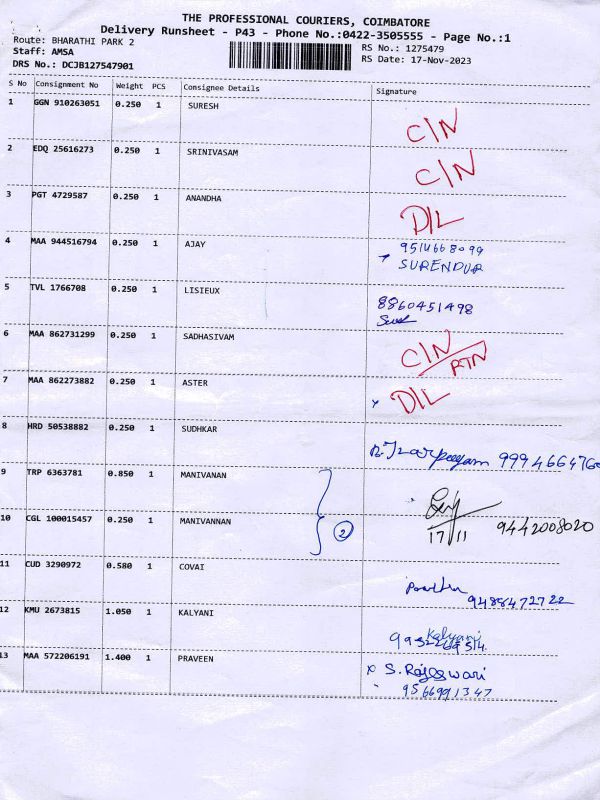 THE PROFESSIONAL COURIERS, COIMBATORE
Delivery Runsheet - P43 - Phone No.:0422-3505555 - Page No.:1
Route: BHARATHI PARK 2
RS No.: 1275479
Staff: AMSA
RS Date: 17-Nov-2023
DRS No.: DCJB127547901
S No Consignment No Weight PCS Consignee Details Signature
1 GGN 910263051 0.250 1 SURESH C/N
2 EDQ 25616273 0.250 1 SRINIVASAM C/N
3 PGT 4729587 0.250 1 ANANDHA D/L
4 MAA 944516794 0.250 1 AJAY 9514668099
SURENDUR
5 TVL 1766708 0.250 1 LISIEUX 8860451498
6 MAA 862731299 0.250 1 SADHASIVAM C/N
RTN
7 MAA 862273882 0.250 1 ASTER D/L
8 HRD 50538882 0.250 1 SUDHKAR
9 TRP 6363781 0.850 1 MANIVANAN
10 CGL 100015457 0.250 1 MANIVANNAN 2 17/11 9442008020
11 CUD 3290972 0.580 1 COVAI
9488472722
12 KMU 2673815 1.050 1 KALYANI Kalyani
13 MAA 572206191 1.400 1 PRAVEEN x S. Rajeswari
9566991347